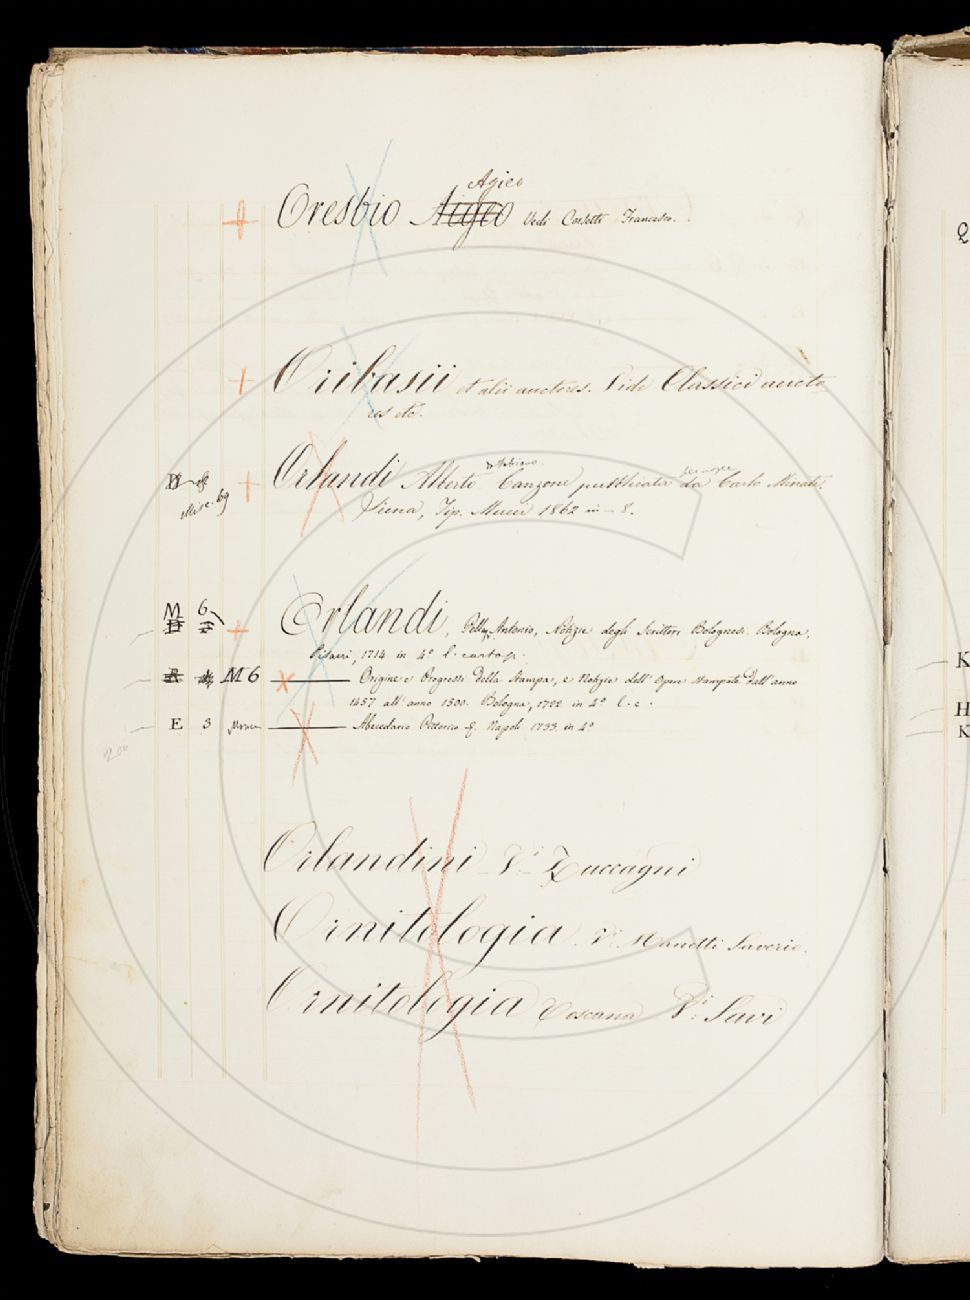 Agieo
Oresbio Vedi Corsetti Francesco.
Oribasii et alii auctores. Vide Classici aucto
res etc.
Orlandi Alberto Canzone pubblicata da Carlo Minati.
Misc. 69
Siena, Tip. Mucci 1862 in-8.
M 6
Orlandi, Antonio, Notizie degli Scrittori Bolognesi. Bologna,
Pisarri, 1714 in 4º
M 6 Origine e Progressi della Stampa, e Notizie dell'Opere stampate dall'anno
1457 all'anno 1500. Bologna, 1722 in 4º
E 3 Abecedario Pittorico Napoli 1733. in 4º
Orlandini Vi Zuccagni
Ornitologia. Vi Manetti Saverio.
Ornitologia Toscana Vi Savi
Q
K
H
K